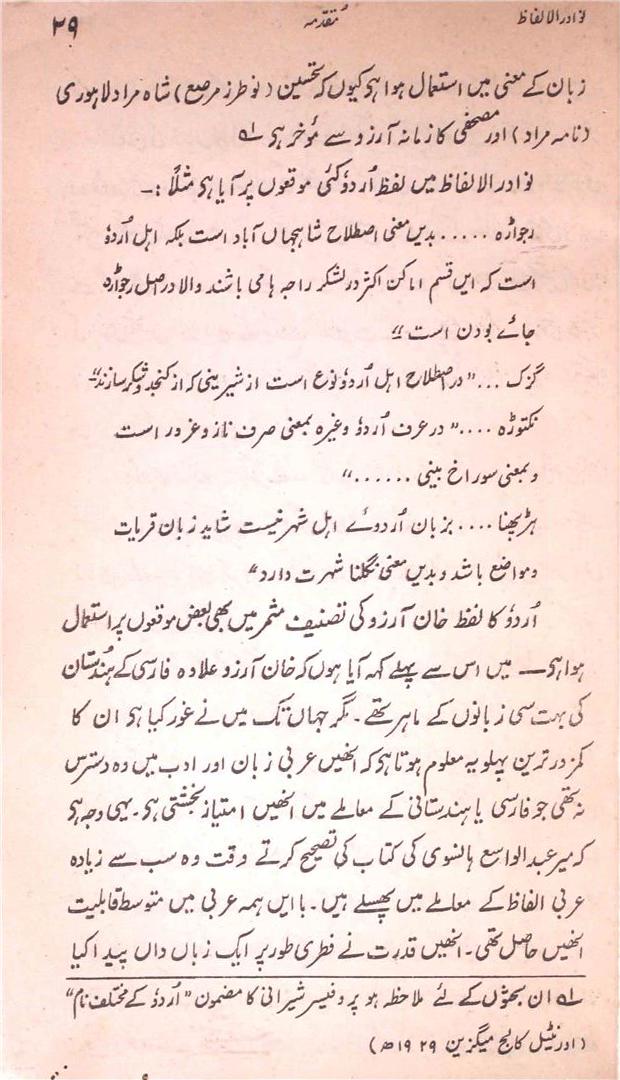 نوادر الالفاظ مُقدّمہ ۲۹
زبان کے معنی میں استعمال ہوا ہی کیوں کہ تحسین (نو طرز مرصع) شاہ مراد لاہوری
(نامہ مراد) اور مصحفی کا زمانہ آرزو سے مُوخر ہی ۱ے
نوادر الالفاظ میں لفظ اُردوٗ کئی موقعوں پر آیا ہی مثلاً :—
رجواڑہ ..... بدیں معنی اصطلاح شاہجہاں آباد است بلکہ اہل اُردوٗ
است کہ ایں قسم اماکن اکثر در لشکر راجہ ہا می باشند والا در اصل رجواڑہ
جائے بودن است "
گزک ... " در اصطلاح اہل اُردوٗ نوع است از شیرینی کہ از کنجد و شکر سازند"
نکتوڑہ .... " در عرف اُردوٗ وغیرہ بمعنی صرف ناز و غرور است
و بمعنی سوراخ بینی ...... "
ہڑپھنا .... بزبان اُردوئے اہل شہر نیست شاید زبان قریات
و مواضع باشد و بدیں معنی نگلنا شہرت دارد"
اُردوٗ کا لفظ خان آرزو کی تصنیف مثمر میں بھی بعض موقعوں پر استعمال
ہوا ہی — میں اس سے پہلے کہہ آیا ہوں کہ خان آرزو علاوہ فارسی کے ہندُستان
کی بہت سی زبانوں کے ماہر تھے۔ مگر جہاں تک میں نے غور کیا ہی ان کا
کمزور ترین پہلو یہ معلوم ہوتا ہی کہ انھیں عربی زبان اور ادب میں وہ دسترس
نہ تھی جو فارسی یا ہندستانی کے معاملے میں انھیں امتیاز بخشتی ہی۔ یہی وجہ ہی
کہ میر عبدالواسع ہانسوی کی کتاب کی تصحیح کرتے وقت وہ سب سے زیادہ
عربی الفاظ کے معاملے میں پھسلے ہیں۔ با ایں ہمہ عربی میں متوسط قابلیت
انھیں حاصل تھی۔ انھیں قدرت نے فطری طور پر ایک زباں داں پیدا کیا
۱ے ان بحثوں کے لئے ملاحظہ ہو پروفیسر شیرانی کا مضمون "اُردوٗ کے مختلف نام"
(اورنٹیل کالج میگزین ۱۹۲۹ء)